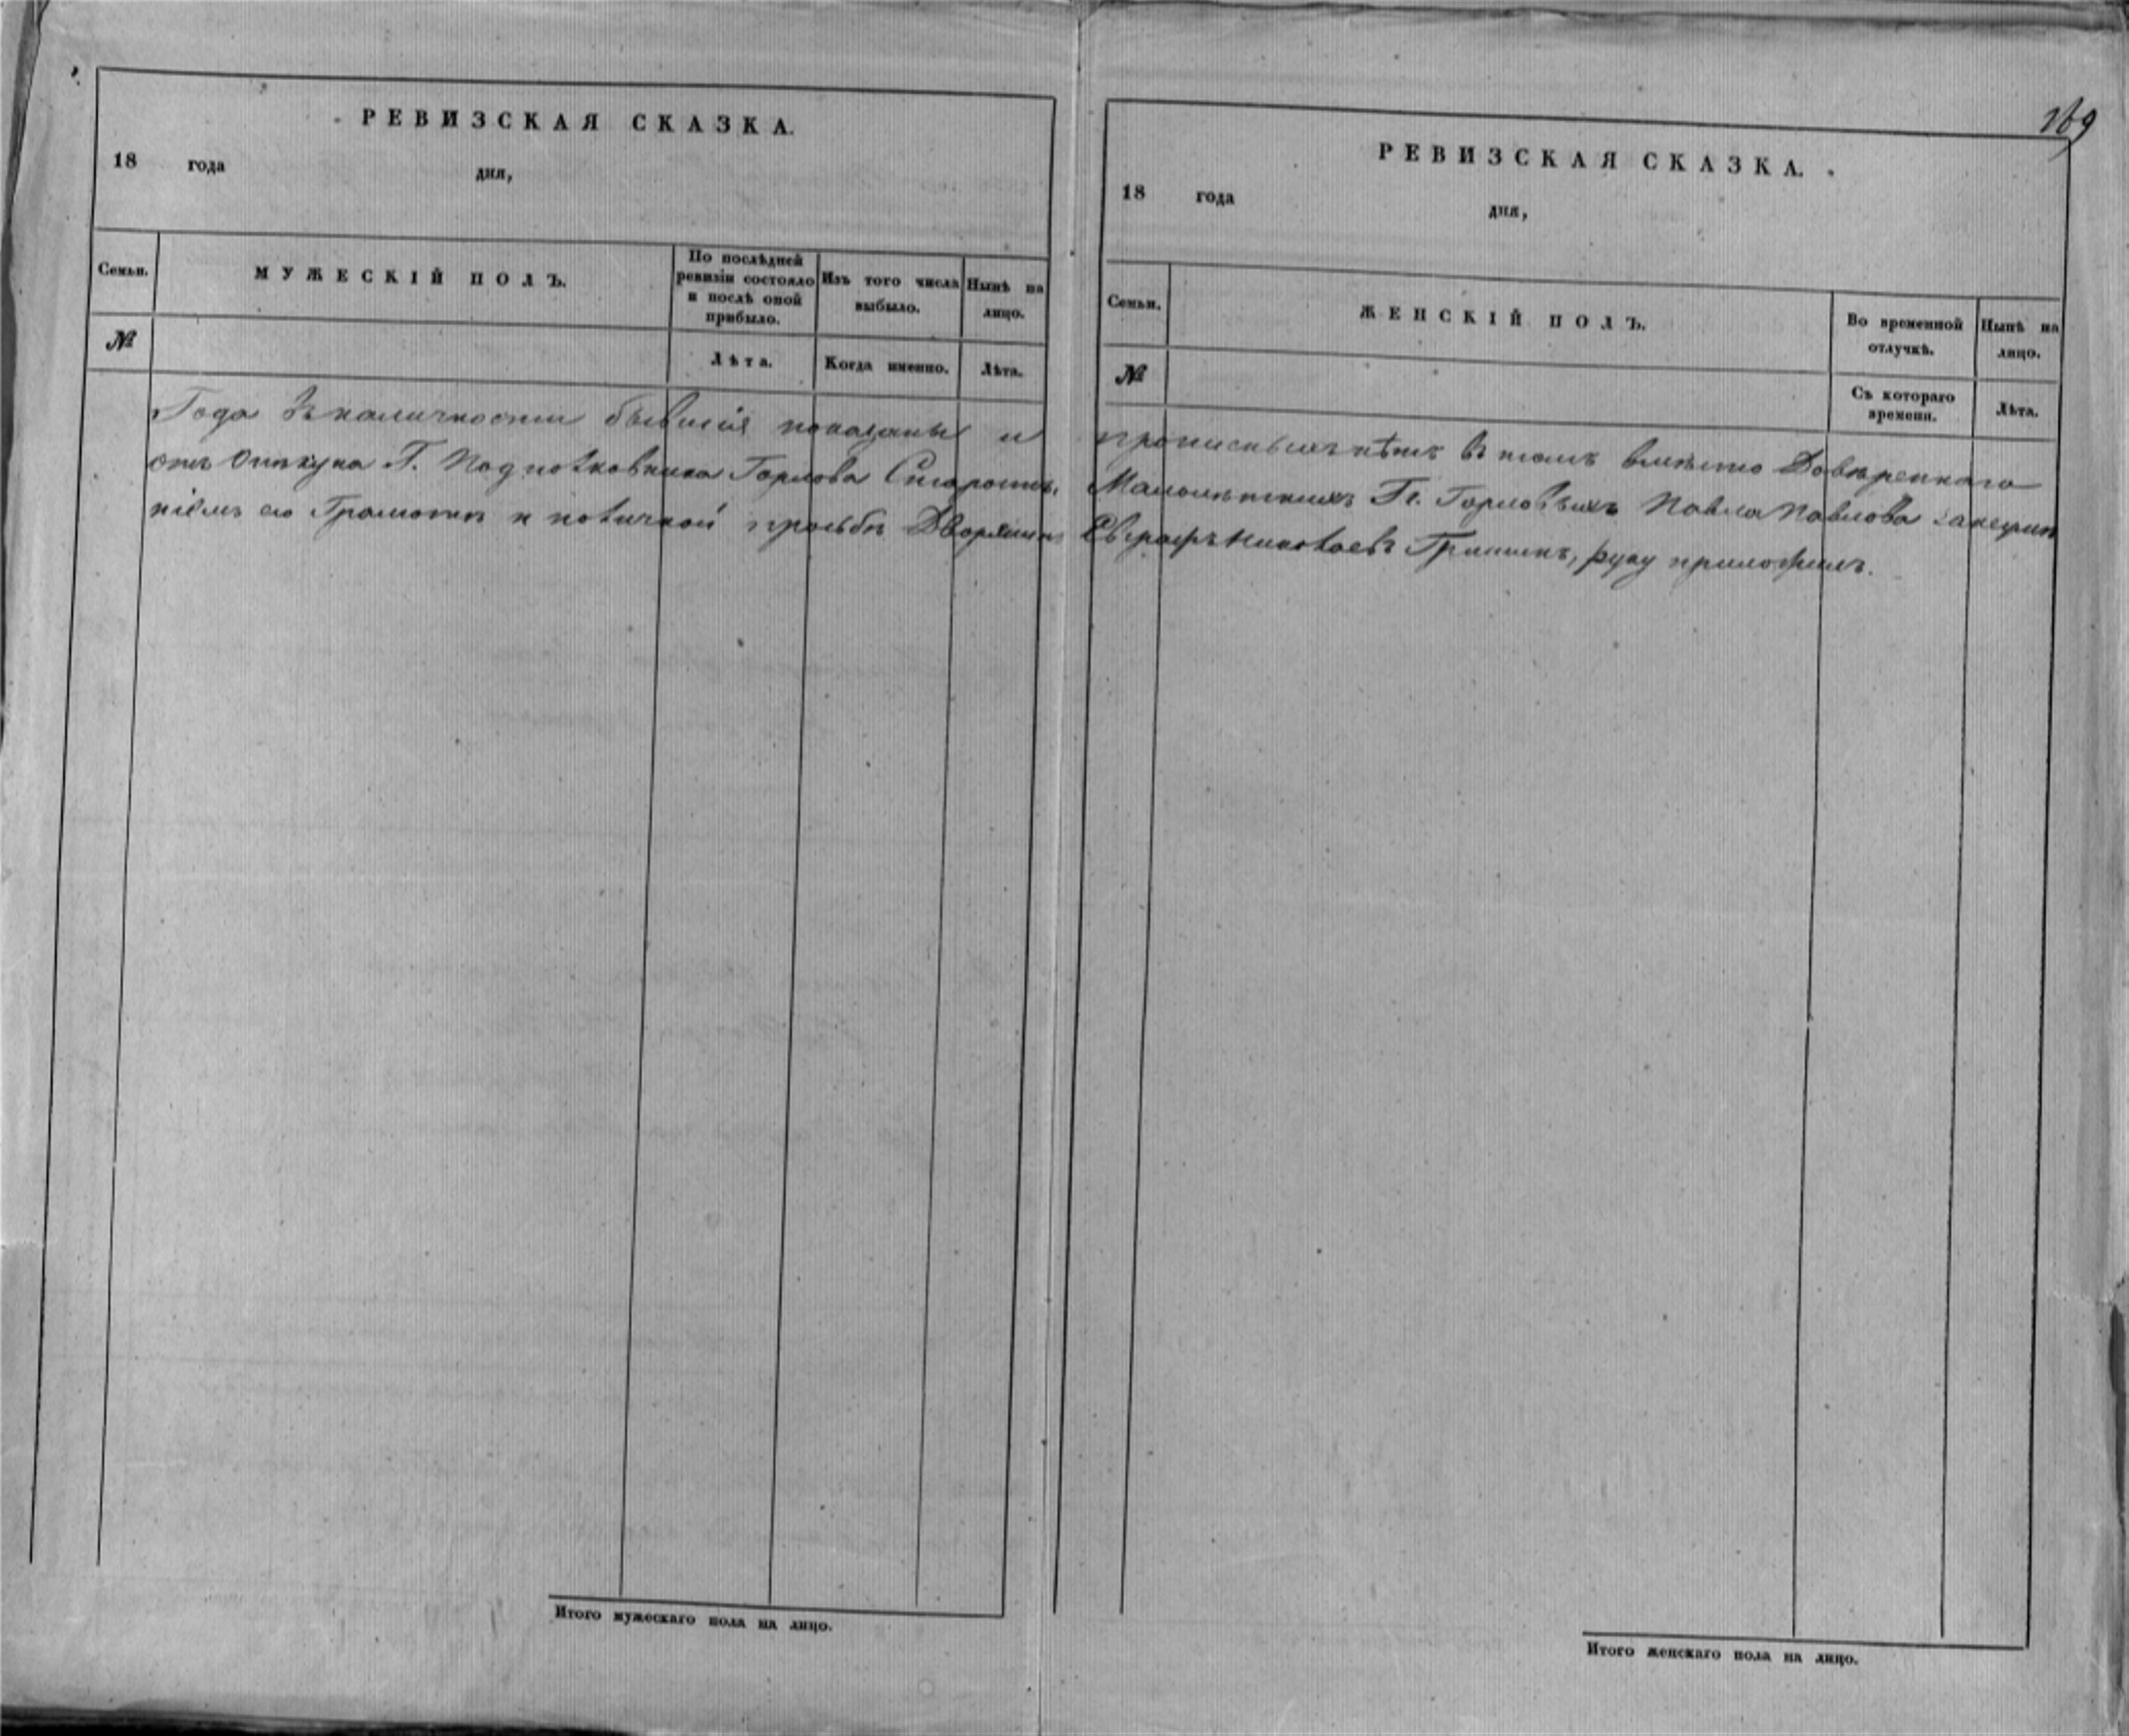 РЕВИЗСКАЯ СКАЗКА.
18 года дня,
Семьи.
МУЖЕСКІЙ ПОЛЪ.
По послѣдней ревизіи состояло и послѣ оной прибыло.
Изъ того числа выбыло.
Нынѣ на лицо.
№
Лѣта.
Когда именно.
Лѣта.
Года въ наличности бывшія показаны и
отъ Опекуна Г. Подполковника Горлова Старосты,
ніемъ его Грамотѣ и по личной прозьбѣ Дворянинъ
Итого мужескаго пола на лицо.
169
РЕВИЗСКАЯ СКАЗКА.
18 года дня,
Семьи.
ЖЕНСКІЙ ПОЛЪ.
Во временной отлучкѣ.
Нынѣ на лицо.
№
Съ котораго времени.
Лѣта.
прописныхъ нѣтъ въ томъ вмѣсто Довѣреннаго
Малолѣтнихъ Гг. Горловыхъ Павла Павлова
Евграфъ Николаевъ руку приложилъ.
Итого женскаго пола на лицо.